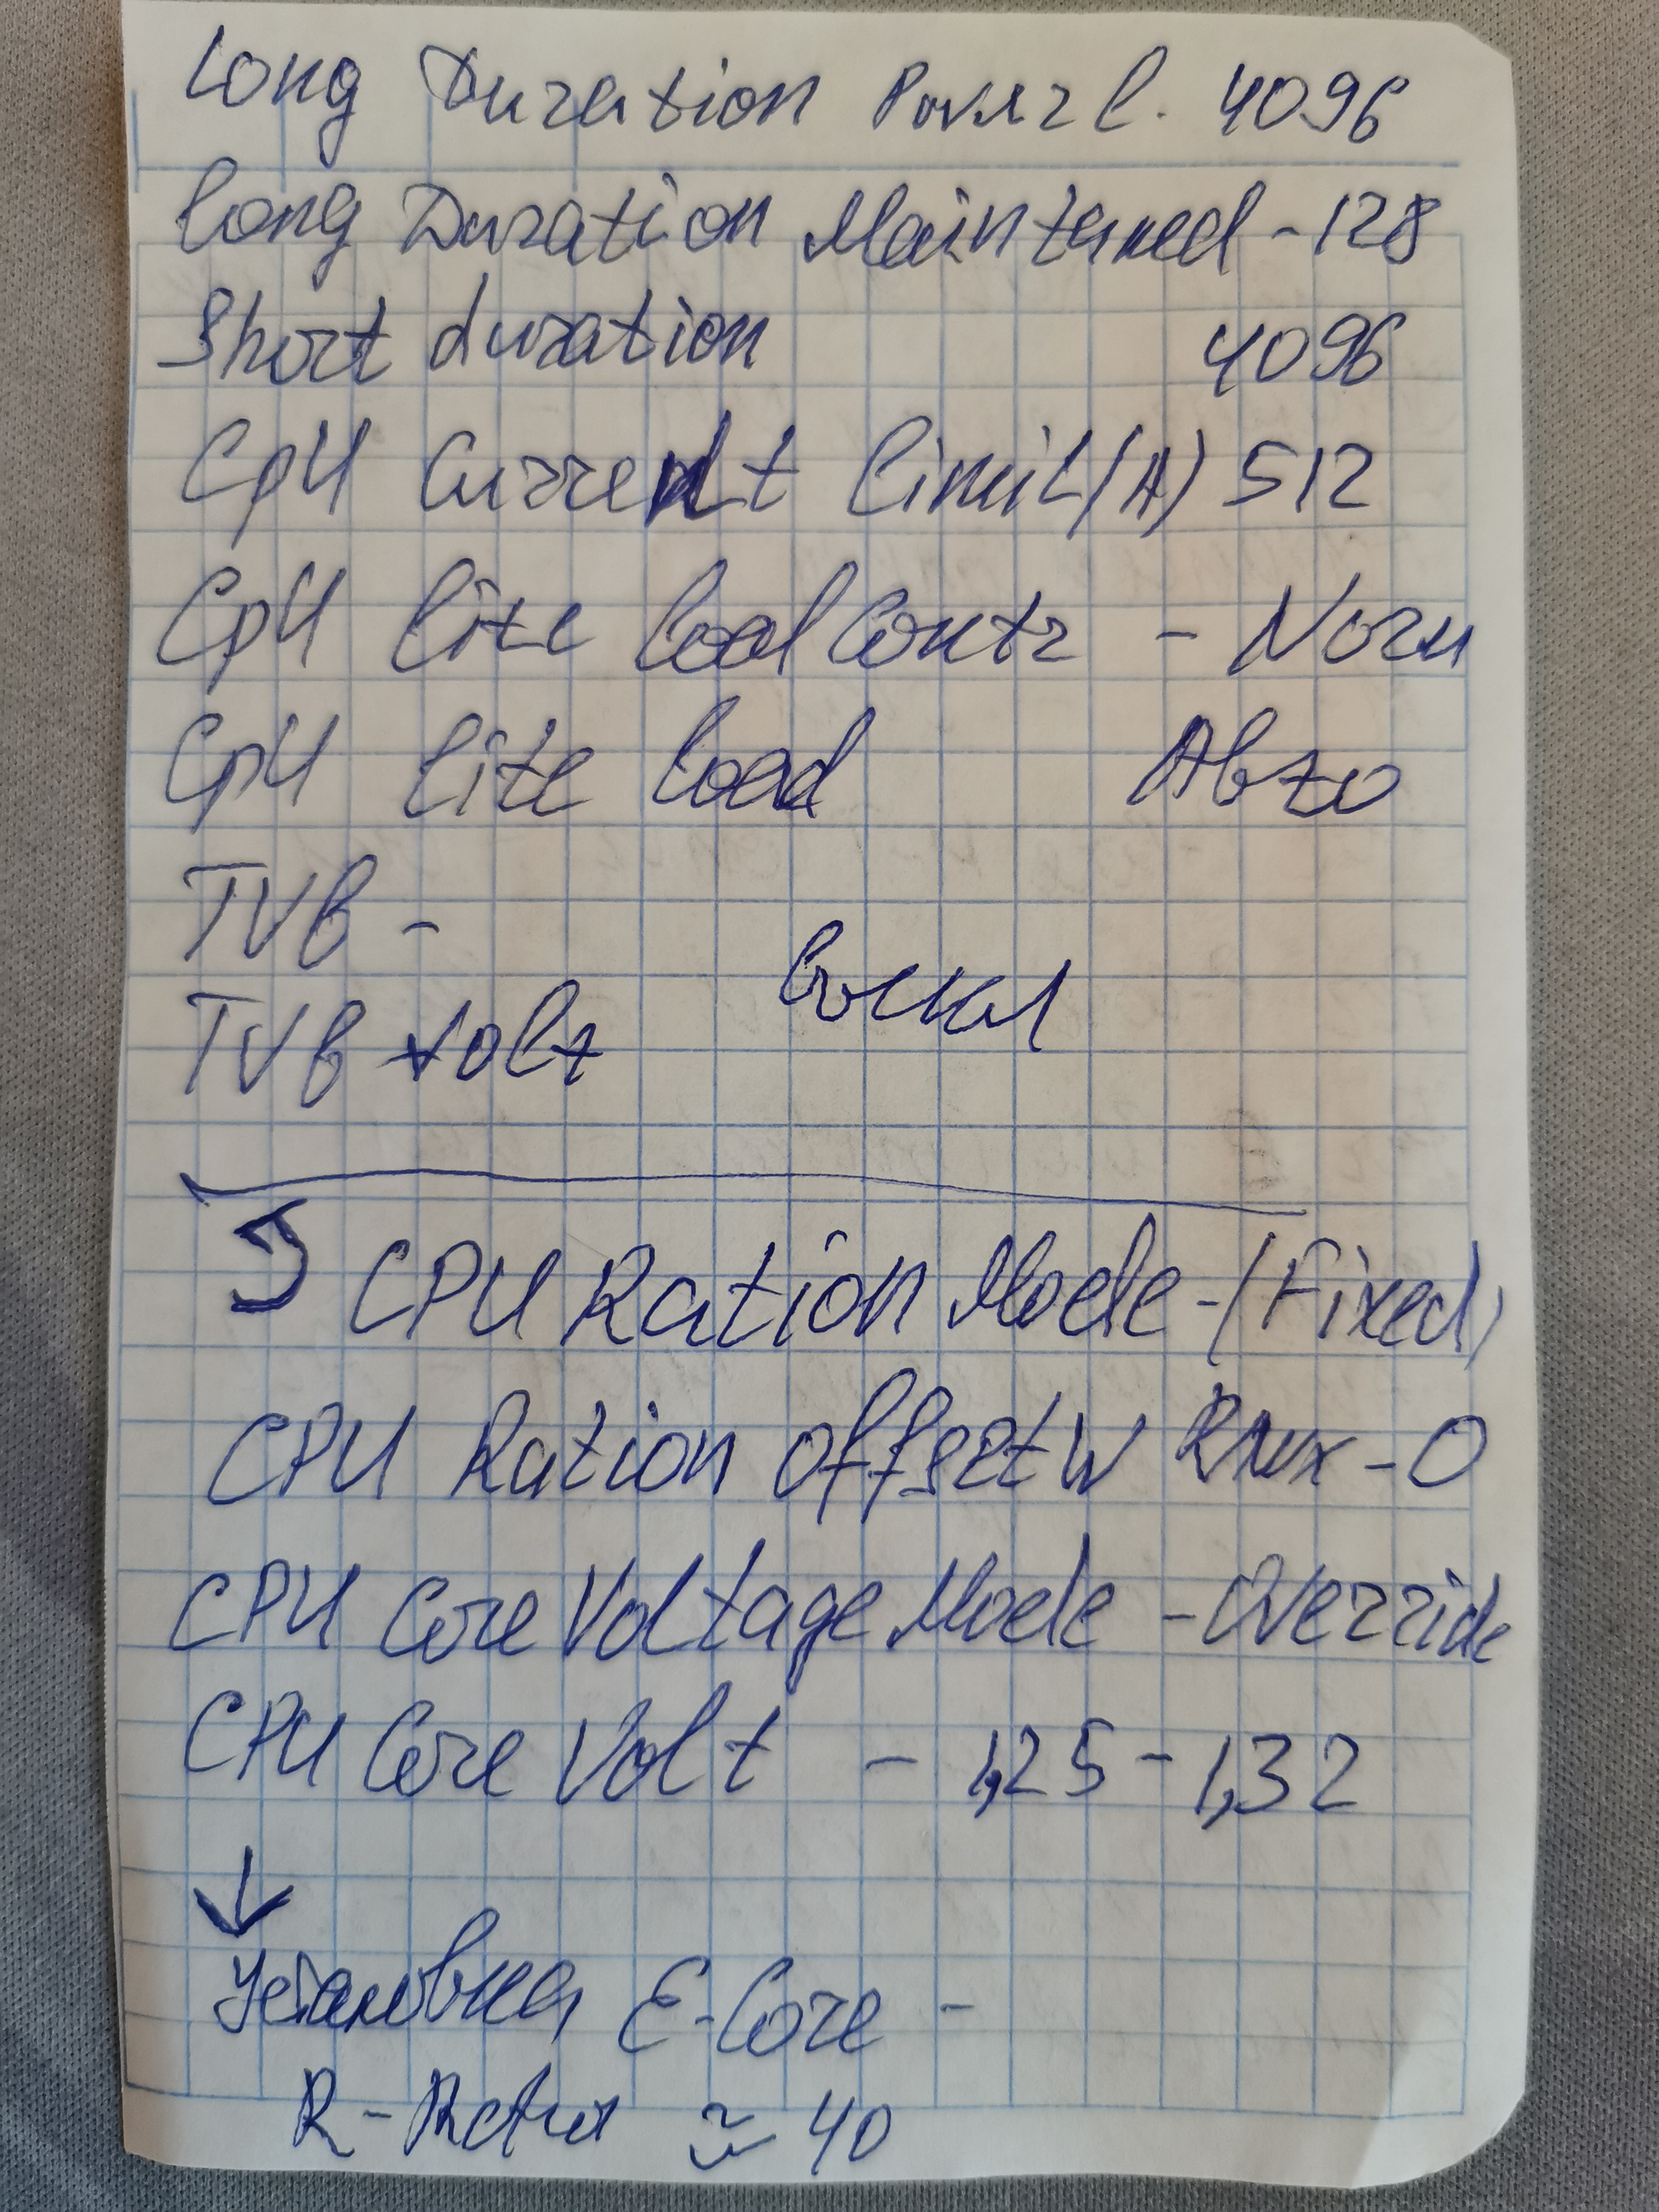 Long Duration Power l. 4096
Long Duration Maintened - 128
Short duration 4096
CpU Current limit (A) 512
CpU lite load Contr - Norm
CpU lite load Авто
TVB -
TVB Volt
5 CPU Ration Mode - (Fixed)
CPU Ration offset w - 0
CPU Core Voltage Mode - Override
CPU Core Volt - 1,25 - 1,32
↓
Установка E-Core -
≈ 40